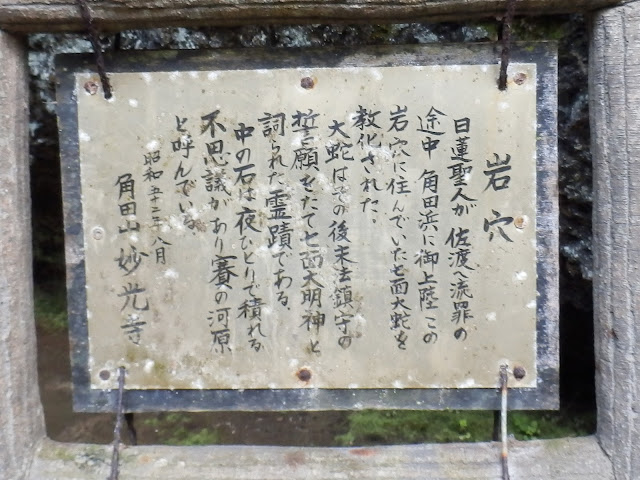 岩穴
日蓮聖人が佐渡へ流罪の
途中 角田浜に御上陸 この
岩穴に住んでいた七面大蛇を
教化された。
大蛇はその後末法鎮守の
誓願をたて七面大明神と
詞られた霊蹟である。
中の石は夜ひとりで積れる
不思議があり賽の河原
と呼んでいる。
昭和五十二年八月
角田山妙光寺